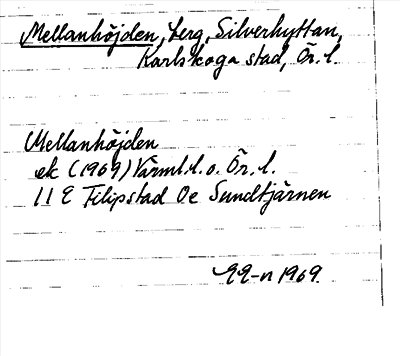 Mellanhöjden, berg, Silverhyttan,
Karlskoga stad, Ör. l.
Mellanhöjden
ek (1969) Värml. l. o. Ör. l.
11 E Filipstad 0e Sundtjärnen
1969.